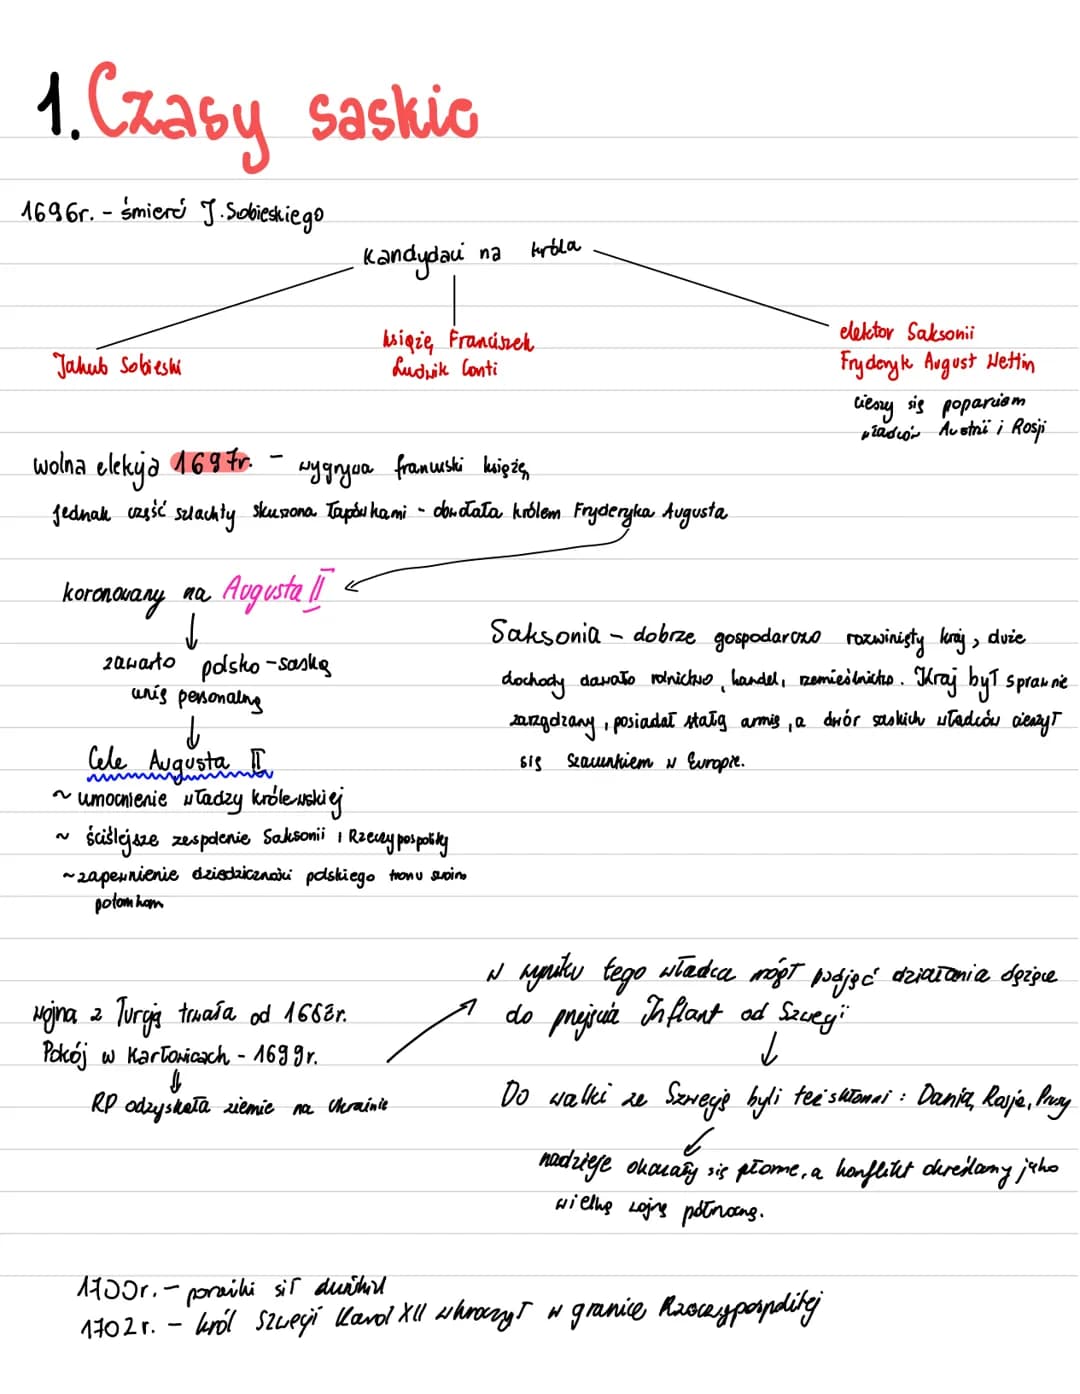 1. Czasy saskie
1696r. - śmierć J. Sobieskiego
Kandydaci na króla
Jakub Sobieski
książę Franciszek
Ludwik Conti
elektor Saksonii
Fryderyk August Wettin
cieszy się poparciem
władców Austrii i Rosji
wolna elekcja 1697r. - wygrywa francuski książę
jednak część szlachty skuszona łapówkami - obwołała królem Fryderyka Augusta
koronowany na Augusta II
zawarto polsko-saską
unię personalną
Cele Augusta II
~ umocnienie władzy królewskiej
~ ściślejsze zespolenie Saksonii i Rzeczypospolitej
~ zapewnienie dziedziczności polskiego tronu swoim
potomkom
Saksonia - dobrze gospodarczo rozwinięty kraj, duże
dochody dawało rolnictwo, handel, rzemieślnictwo. Kraj był sprawnie
zarządzany, posiadał stałą armię, a dwór saskich władców cieszył
się szacunkiem w Europie.
Wojna z Turcją trwała od 1683r.
Pokój w Karłowicach - 1699r.
RP odzyskała ziemie na Ukrainie
W wyniku tego władca mógł podjąć działania dążące
do przejścia Inflant od Szwecji
Do walki ze Szwecją byli też skłonni: Dania, Rosja, Prusy
nadzieje okazały się płonne, a konflikt określamy jako
wielką wojnę północną.
1700r. - porażki sił duńskich
1702r. - król Szwecji Karol XII wkroczył w granice Rzeczypospolitej